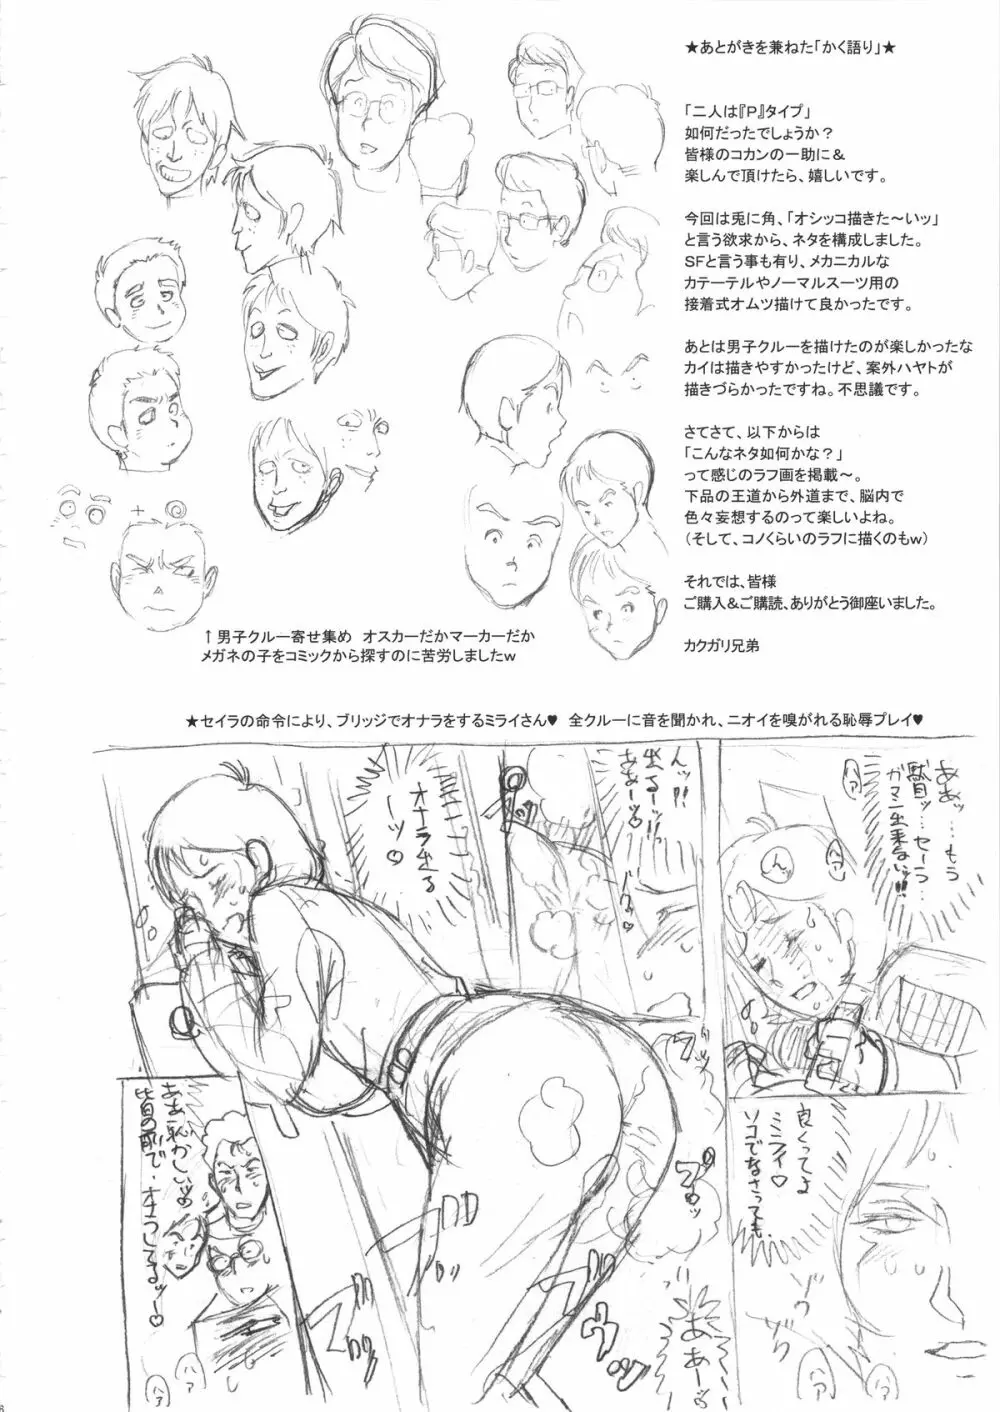 ★あとがきを兼ねた「かく語り」★
「二人は『P』タイプ」
如何だったでしょうか？
皆様のコカンの一助に＆
楽しんで頂けたら、嬉しいです。
今回は兎に角、「オシッコ描きた～いッ」
と言う欲求から、ネタを構成しました。
SFと言う事も有り、メカニカルな
カテーテルやノーマルスーツ用の
接着式オムツ描けて良かったです。
あとは男子クルーを描けたのが楽しかったな
カイは描きやすかったけど、案外ハヤトが
描きづらかったですね。不思議です。
さてさて、以下からは
「こんなネタ如何かな？」
って感じのラフ画を掲載～。
下品の王道から外道まで、脳内で
色々妄想するのって楽しいよね。
（そして、コノくらいのラフに描くのもw）
それでは、皆様
ご購入＆ご購読、ありがとう御座いました。
カクガリ兄弟
↑男子クルー寄せ集め　オスカーだかマーカーだか
メガネの子をコミックから探すのに苦労しましたw
★セイラの命令により、ブリッジでオナラをするミライさん♥　全クルーに音を聞かれ、ニオイを嗅がれる恥辱プレイ♥
ああッ…もう
駄目ッ…セーラ…
ガマン出来ないッ!!
ハァ
ハァ
ん
んッ!!
出るーッ!!
ああーッ♡
オナラ出る
ーーッ♡
良くってよ
ミライ♡
ソコでなさっても
ゾク
ゾク
ああ
恥かしい
皆の前で
ああーッ
ハァ
ハァ
ハァ
ハァ